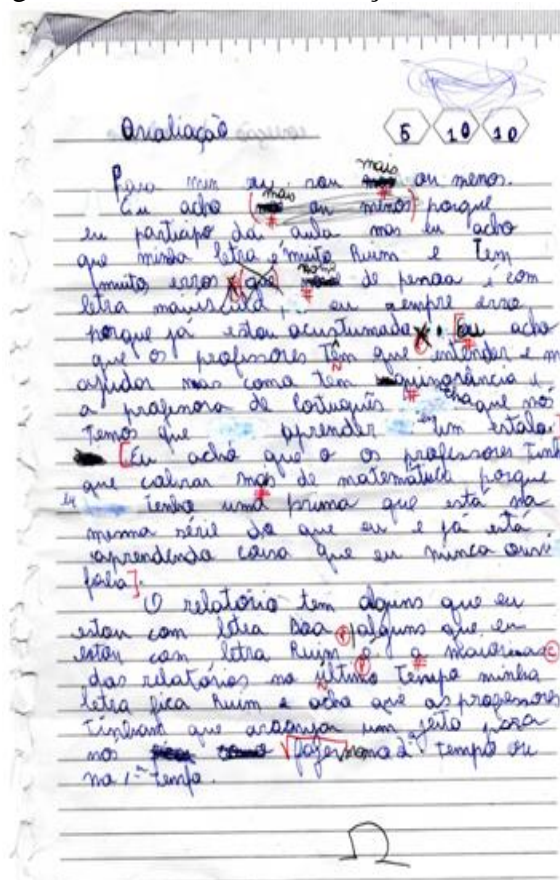 Avaliação
5 10 10
mais
Para min eu sou ou menos.
mais
Eu acho (ou menos) porque
eu participo da aula mas eu acho
que minha letra é muito Ruim e Tem
muito erros (que de pessoa é com
letra maiuscula, eu sempre erro
porque já estou acustumada. [Eu acho
que os professores Têm que entender e m
ajudar mas como tem e,
a professora de Português acha que nos
Temos que aprender um estalo.
[Eu acho que o os professores Tinh
que cobrar mas de matemática porque
eu Tenho uma prima que esta na
mesma série do que eu e já está
aprendendo coisa que eu nunca ouvi
fala].
O relatório tem alguns que eu
estou com letra Boa, alguns que eu
estou com letra Ruim e a maiorias
dos relatórios no último Tempo minha
letra fica Ruim e acho que as professores
Tinham que arranjar um jeito para
nos fazer no 2º Tempo ou
na 1º Tempo.